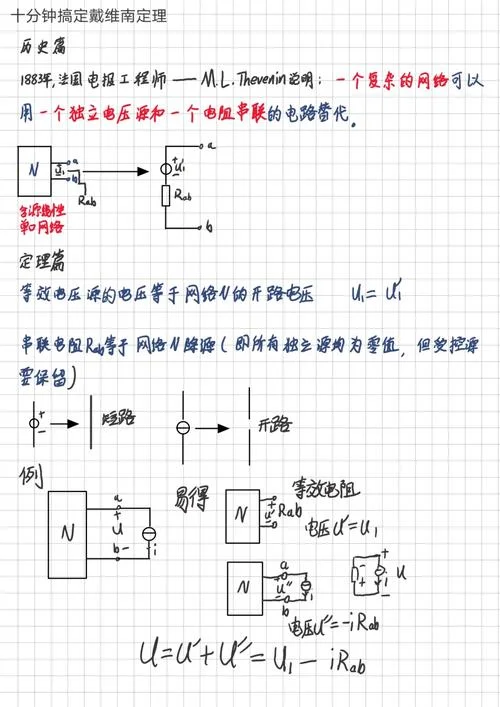 十分钟搞定戴维南定理
历史篇
1883年,法国电报工程师——M.L.Thevenin说明：一个复杂的网络可以
用一个独立电压源和一个电阻串联的电路替代。
N a b U₁ Rab
a + U'₁ - Rab b
含源线性
单口网络
定理篇
等效电压源的电压等于网络N的开路电压 U₁=U'₁
串联电阻Rab等于网络N除源(即所有独立源均为零值,但受控源
要保留)
+ - 短路 开路
例
N a + U b - i
易得
等效电阻
N U' Rab
电压U'=U₁
N a U'' b i
+ - + U -
电压U''=-iRab
U=U'+U''=U₁-iRab